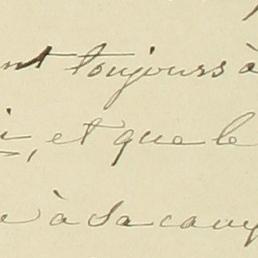 nt toujours à
i, et que le
e à sa cam